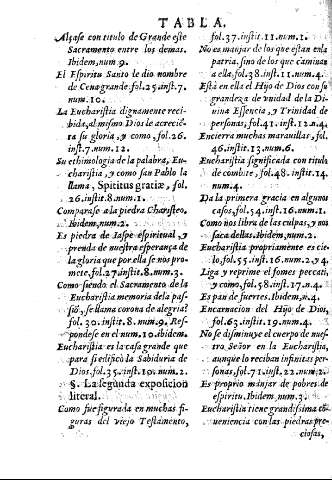 TABLA.
Alçase con titulo de Grande este
Sacramento entre los demas.
Ibidem, num 9.
El Espiritu Santo le dio nombre
de Cena grande. fol. 25. inst. 7.
num. 10.
La Eucharistia dignamente reci-
bida, al mismo Dios le acreciē-
ta su gloria, y como, fol. 26.
inst. 7. num. 12.
Su ethimologia de la palabra, Eu-
charistia, y como san Pablo la
llama, Spiritus gratiæ, fol.
26. instit. 8. num. 1.
Comparase a la piedra Charisteo.
Ibidem, num. 2.
Es piedra de Iaspe espiritual, y
prenda de nuestra esperança de
la gloria que por ella se nos pro-
mete, fol. 27. instit. 8. num. 3.
Como siendo el Sacramento de la
Eucharistia memoria de la pas-
siō, se llama corona de alegria?
fol. 30. instit. 8. num. 9. Res-
pondese en el num. 10. ibidem.
Eucharistia es la casa grande que
para si edificò la Sabiduria de
Dios. fol. 35. inst. 10. num. 2.
§. La segunda exposicion
literal.
Como fue figurada en muchas fi-
guras del viejo Testamento,
fol. 37. instit. 11. num. 1.
No es manjar de los que estan en la
patria, sino de los que caminan
a ella, fol. 38. inst. 11. num. 4.
Està en ella el Hijo de Dios con su
grandeza de vnidad de la Di-
uina Essencia, y Trinidad de
personas, fol. 41. inst. 12. n. 4.
Encierra muchas marauillas, fol.
46. instit. 13. num. 6.
Eucharistia significada con titulo
de combite, fol. 48. instit. 14.
num. 4.
Da la primera gracia en algunos
casos, fol. 54. inst. 16. num. 1.
Como nos libra de las culpas, y nos
saca dellas. Ibidem, num. 2.
Eucharistia propriamente es cie-
lo, fol. 55. inst. 16. num. 2. y 4.
Liga y reprime el fomes peccati,
y como, fol. 58. inst. 17. n. 4.
Es pan de fuertes. Ibidem, n. 4.
Encarnacion del Hijo de Dios,
fol. 63. instit. 19. num. 4.
No se disminuye el cuerpo de nues-
tro Señor en la Eucharistia,
aunque lo reciban infinitas per-
sonas, fol. 71. inst. 22. num. 2.
Es proprio manjar de pobres de
espiritu. Ibidem, num. 3.
Eucharistia tiene grandissima cō-
ueniencia con las piedras pre-
ciosas,